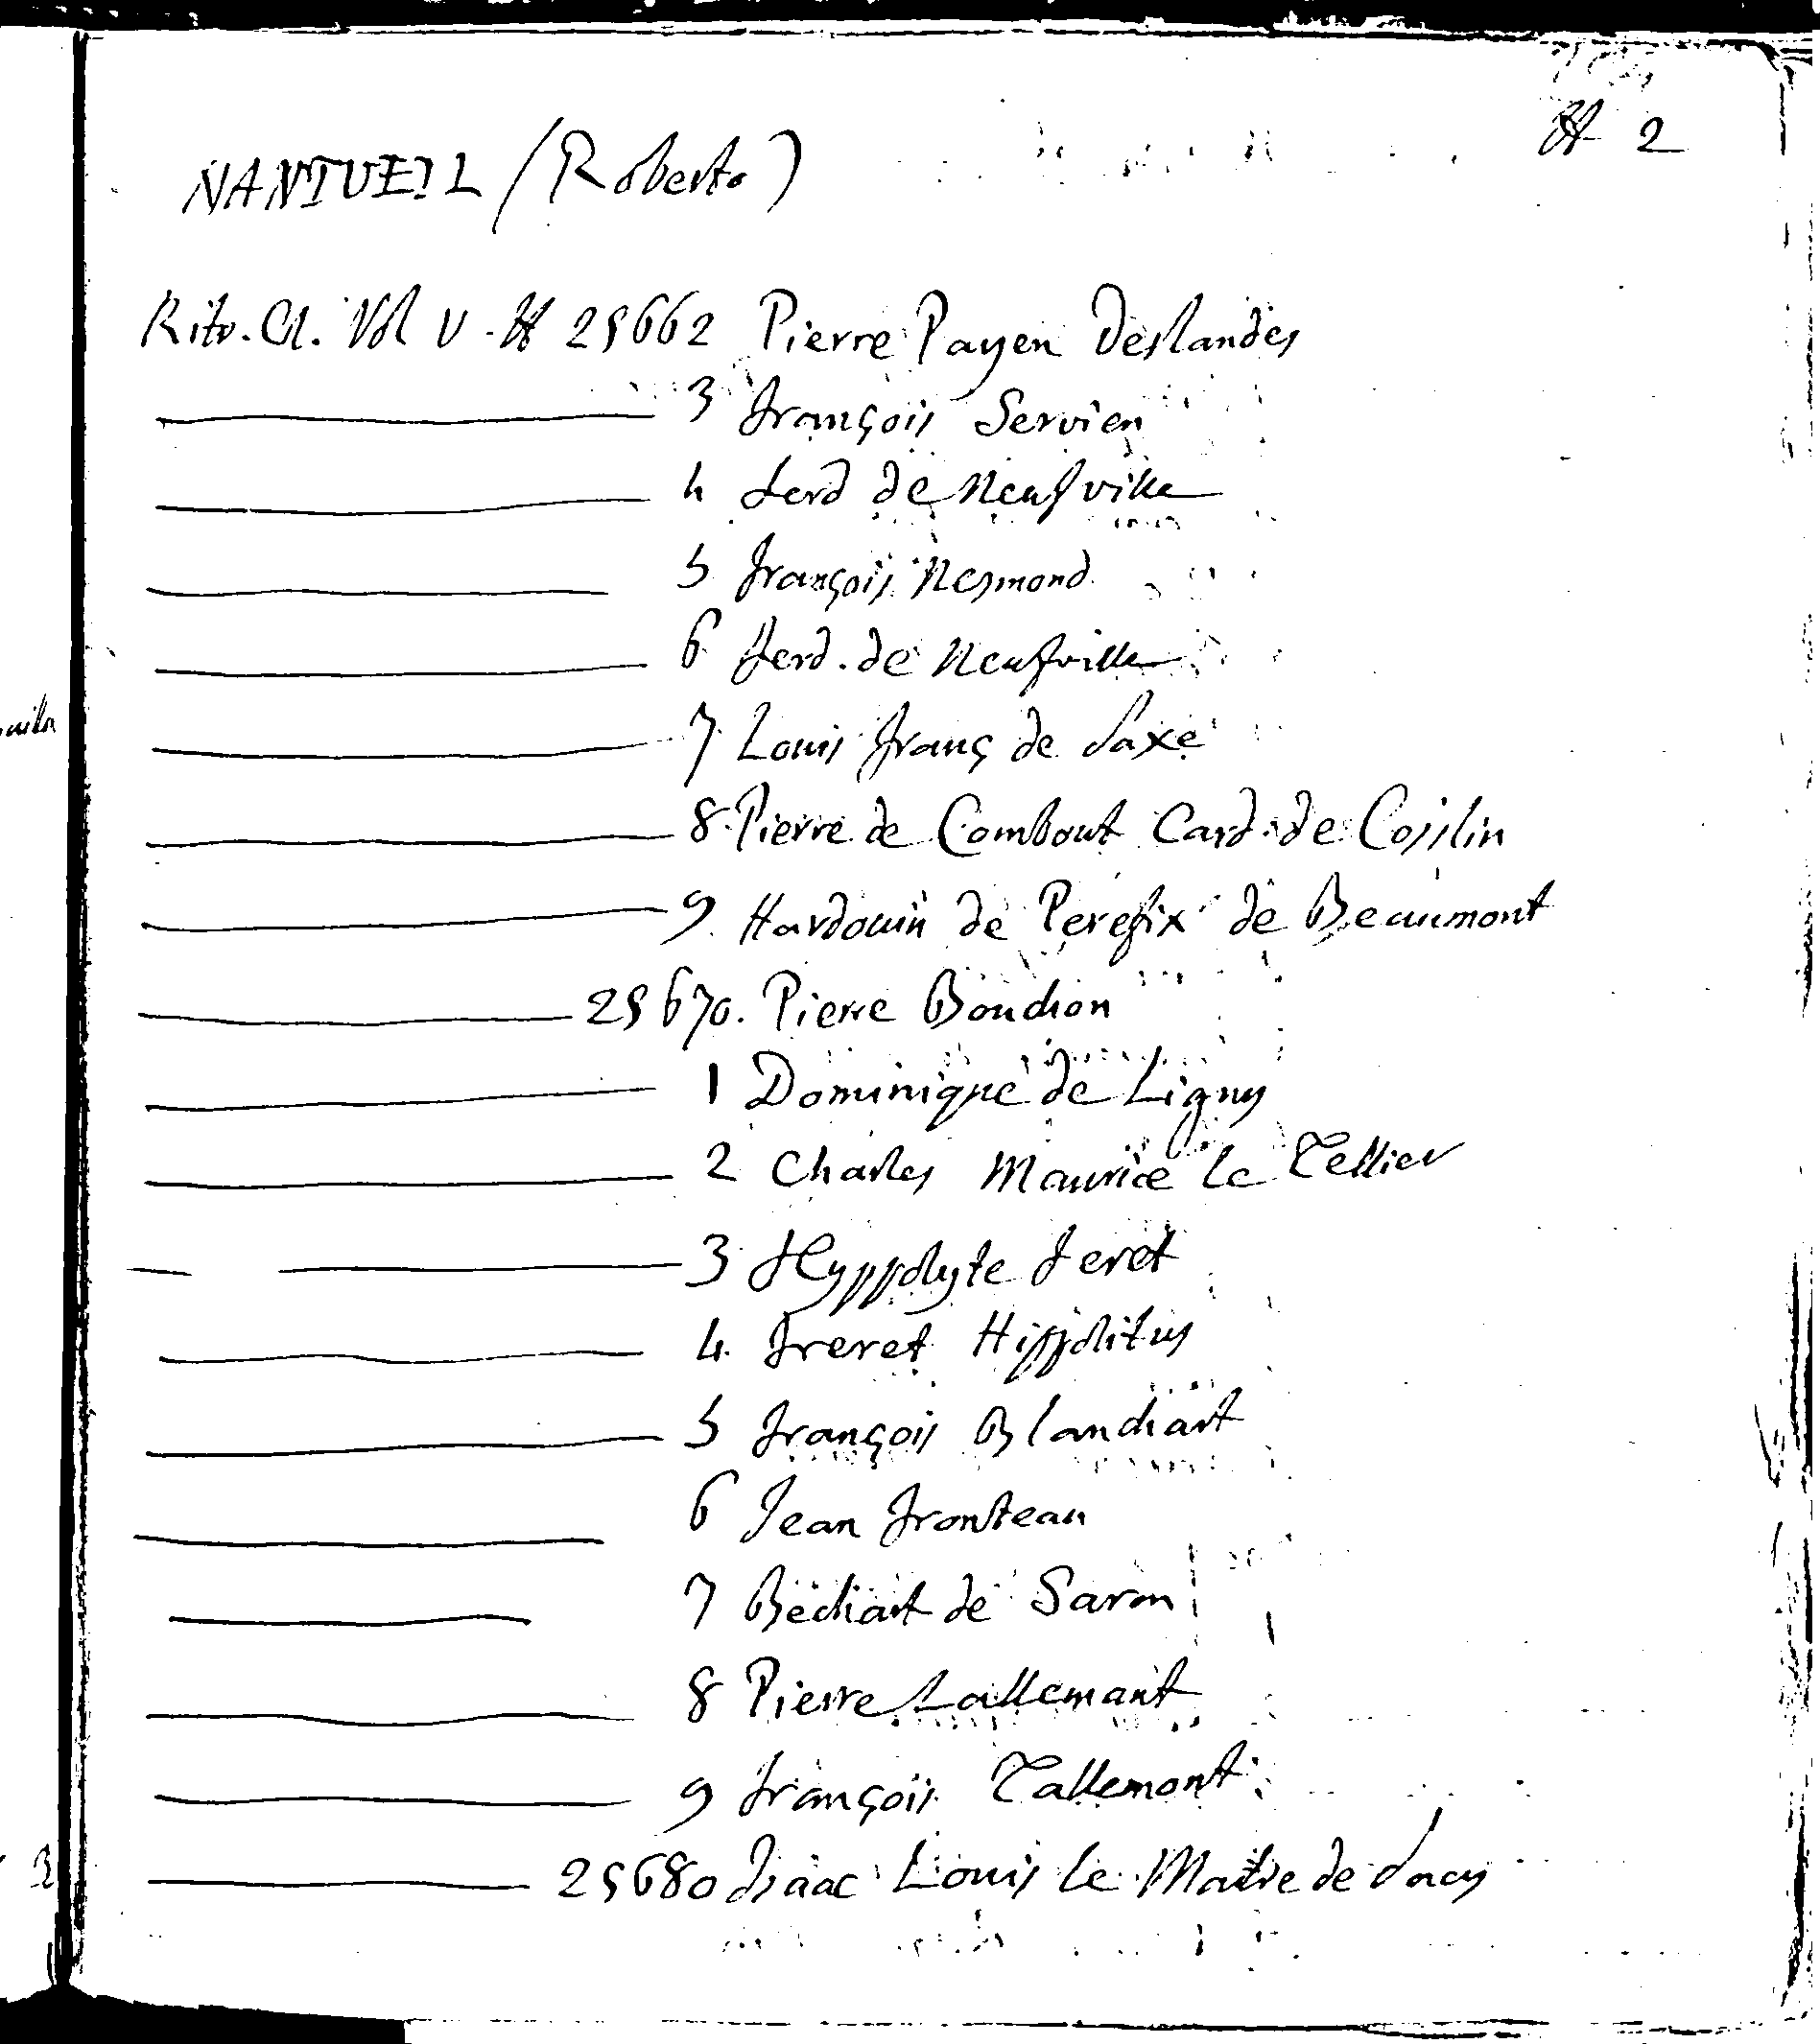 # 2
NANTUEIL (Roberto)
Ritr. Cl. Vol V - # 25662 Pierre Payen Deslandes
3 François Servien
4 Ferd de Neufville
5 François Nesmond
6 Ferd. de Neufville
7 Louis Franç de Saxe
8. Pierre de Combout Card. de Coislin
9. Hardouin de Perefix de Beaumont
25670. Pierre Bouchon
1 Dominique de Ligny
2 Charles Maurice le Tellier
3 Hyppolyte Feret
4. Freret Hippolitus
5 François Blanchart
6 Jean Fronteau
7 Bechart de Saron
8 Pierre Lallemant
9 François Tallemont
25680 Isaac Louis le Matre de Sacy